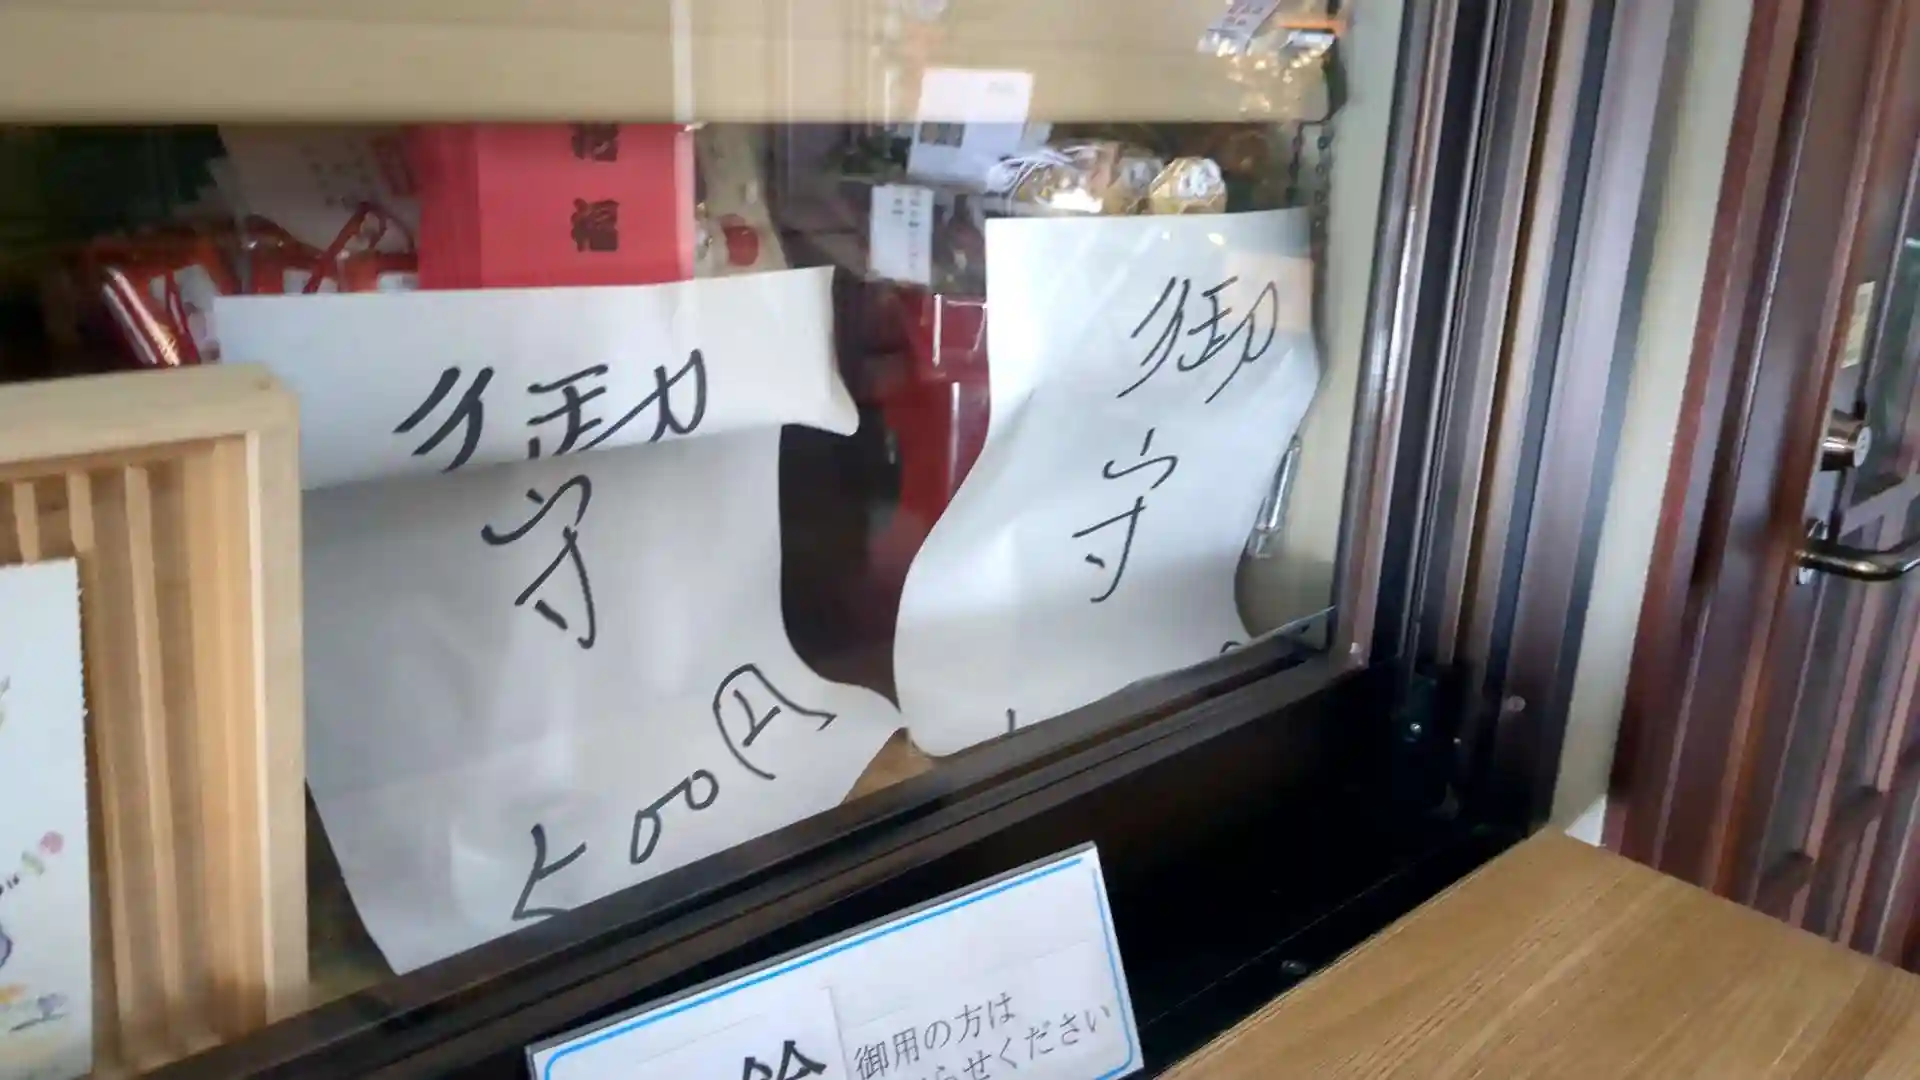 福
御
守
500円
御
守
鈴
御用の方は
らせください